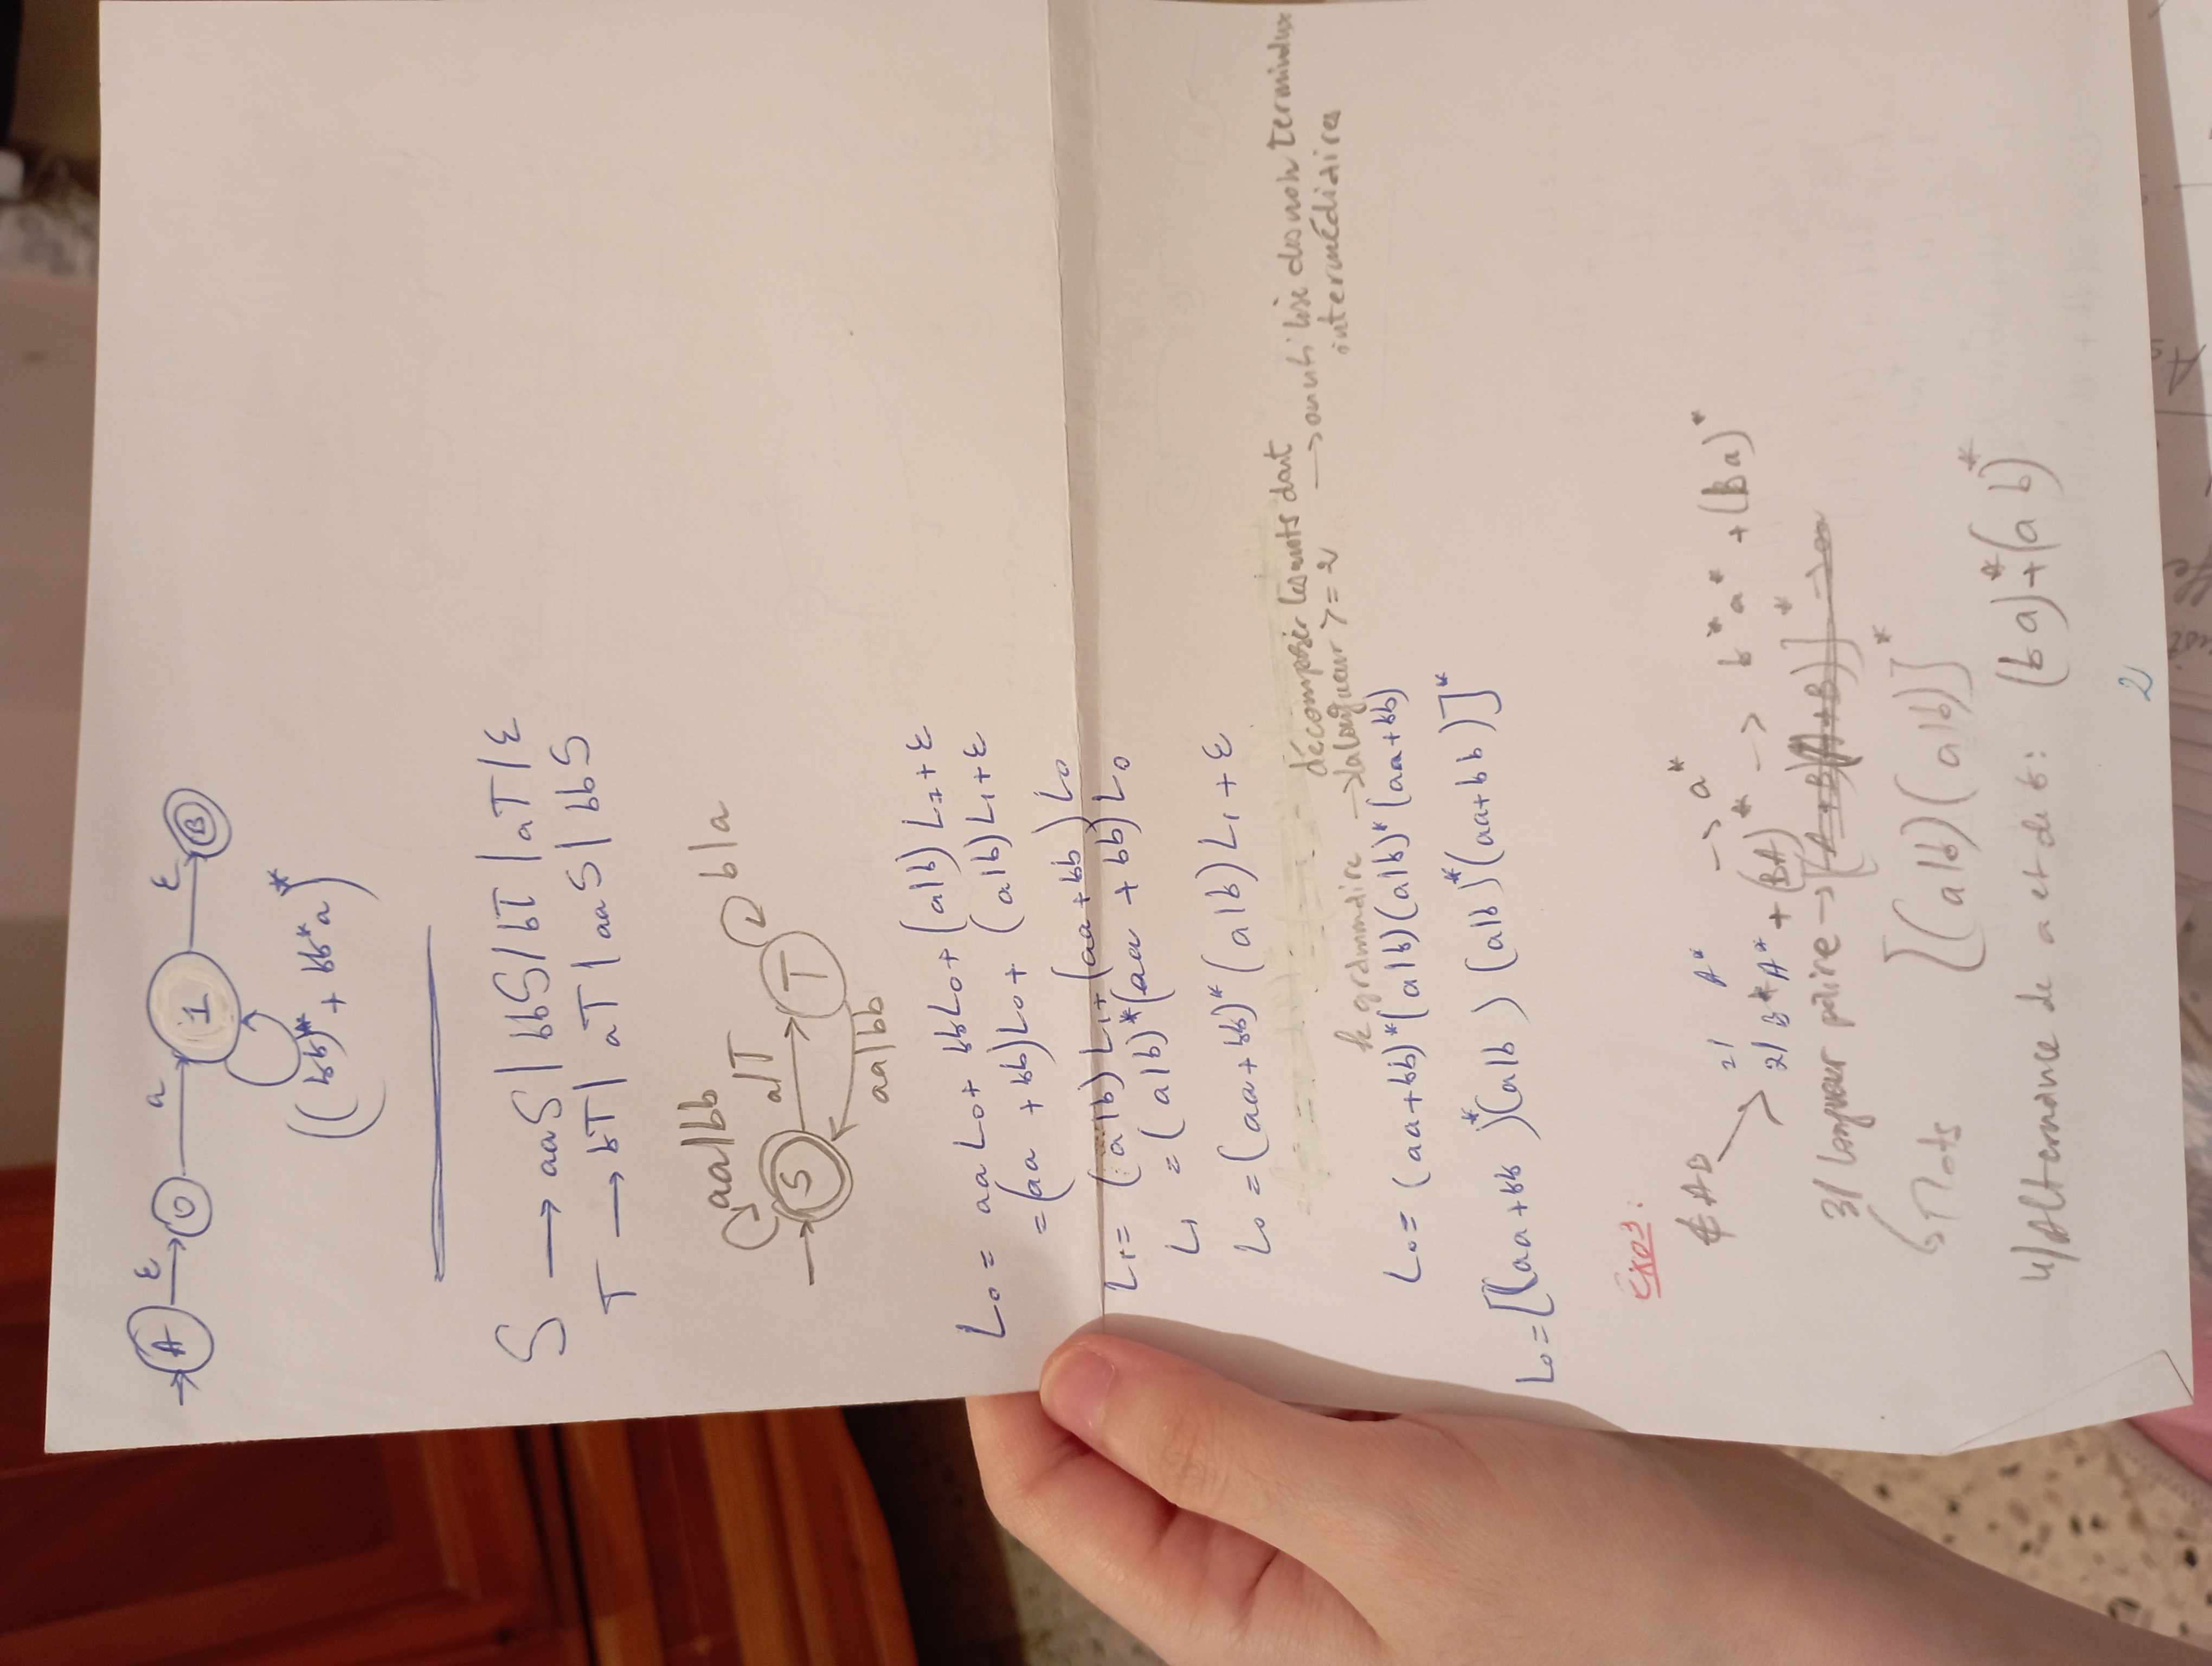 → A ε → 0 a → 1 ε → B
((bb)* + bb*a)*
S → aaS | bbS | bT | aT | ε
T → bT | aT | aaS | bbS
aa|bb
a|T
b|a
S
T
aa|bb
L₀ = aa L₀ + bb L₀ + (a|b) L₁ + ε
= (aa + bb) L₀ + (a|b) L₁ + ε
L₁ = (a|b) L₁ + (aa + bb) L₀
L₁ = (a|b)* (aa + bb) L₀
L₀ = (aa + bb)* (a|b) L₁ + ε
décomposer les mots dont → on utilise des non terminaux
la grammaire → la longueur >= 2 intermédiaires
L₀ = (aa + bb)* (a|b) (a|b)* (aa + bb)
L₀ = [(aa + bb)* (a|b) (a|b)* (aa + bb)]*
Exo3:
∉ AB
2/ A* → a*
2/ B*A* + (BA)* → b*a* + (ba)*
3/ longueur paire → [(A+B)(A+B)]* →
Mots [(a|b)(a|b)]*
4/ Alternance de a et de b : (ba)* + (ab)*
2